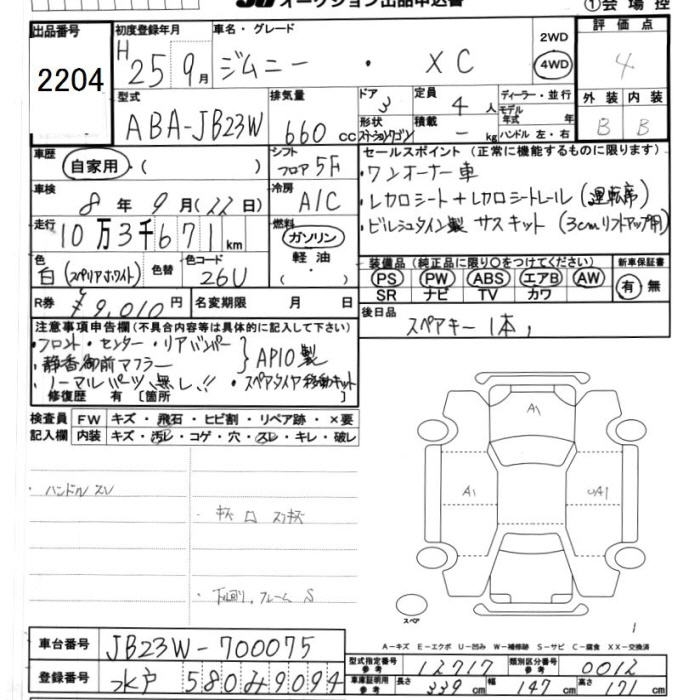 オークション出品申込書 ①会場控
出品番号 初度登録年月 車名・グレード 2WD 評価点
2204 H25 9月 ジムニー ・ XC 4WD 4
型式 排気量 ドア 定員 ディーラー・並行 外装 内装
ABA-JB23W 660cc 3 4人 モデル年式 年 B B
形状 積載 ハンドル 左・右
ステーションワゴン -kg
車歴 シフト セールスポイント (正常に機能するものに限ります)
自家用・( ) フロア5F ・ワンオーナー車
車検 冷房 ・レカロシート+レカロシートレール(運転席)
8年9月(22日) A/C ・ビルシュタイン製サスキット(3cmリフトアップ用)
走行 燃料
10万3千671km ガソリン・軽油・( )
色 色替 色コード 装備品 (純正品に限り○をつけてください) 新車保証書
白(スペリアホワイト) 26U PS PW ABS エアB AW 有・無
SR ナビ TV カワ
R券 ¥9,010円 名変期限 月 日 後日品
スペアキー1本,
注意事項申告欄(不具合内容等は具体的に記入して下さい)
・フロント・センター・リアバンパー
・静香御前マフラー }APIO製
・ノーマルパーツ無し!! ・スペアタイヤ移動キット
修復歴 有 [箇所 ]
検査員 FW キズ・飛石・ヒビ割・リペア跡・×要
記入欄 内装 キズ・汚レ・コゲ・穴・スレ・キレ・破レ
A1
A1 UA1
・ハンドルスレ
・キズ ロ スリキズ
・下回り、フレームS
スペア
1
A-キズ E-エクボ U-凹み W-補修跡 S-サビ C-腐食 XX-交換済
車台番号 JB23W-700075
型式指定番号 参考 12717 類別区分番号 参考 0012
登録番号 水戸 580み9094
車庫証明用 参考 長さ 339cm 幅 147cm 高さ 171cm